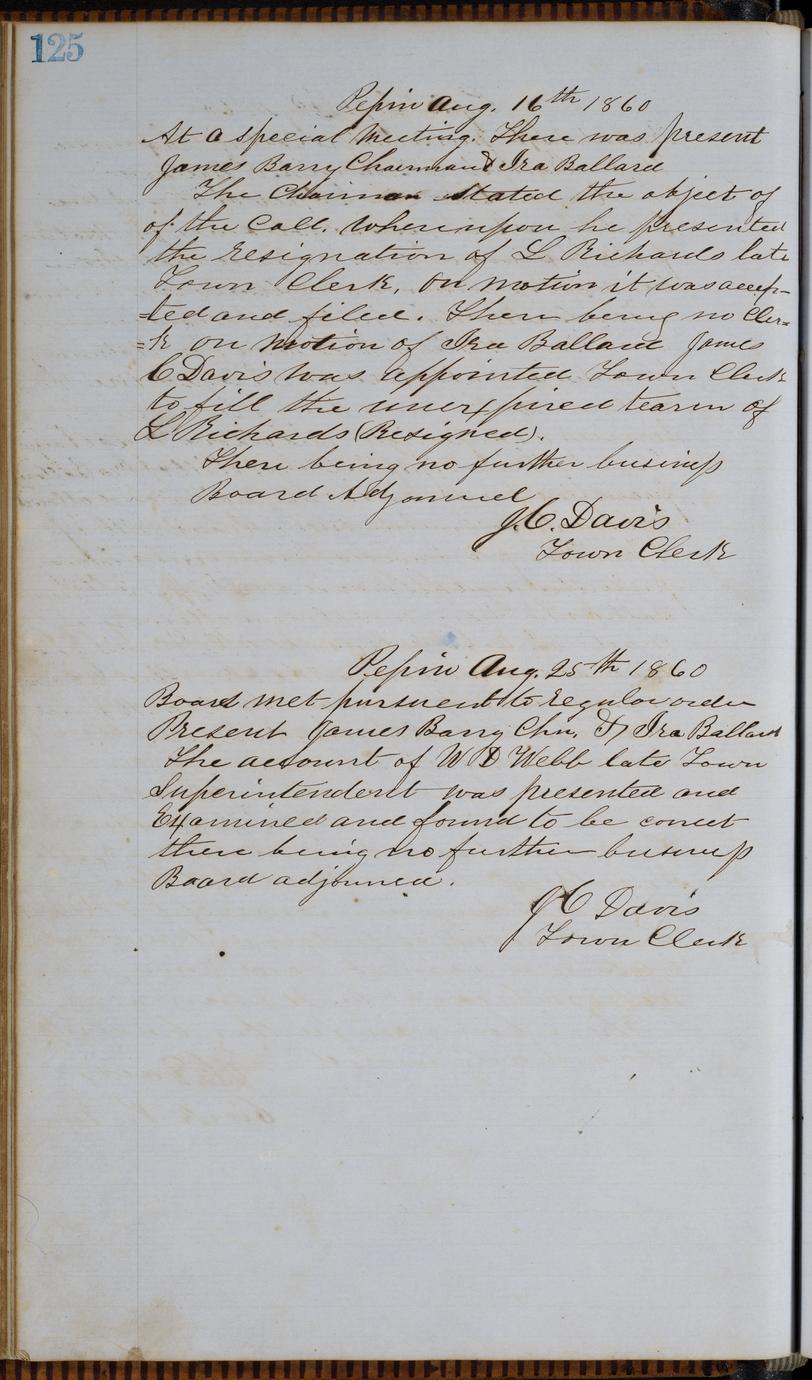 125
Pepin Aug. 16th 1860
At a special meeting. There was present
James Barry Chairman & Ira Ballard
The Chairman stated the object of
of the Call. Whereupon he presented
the resignation of L Richards late
Town Clerk, On motion it was accep-
=ted and filed. There being no Cler=
=k on motion of Ira Ballard James
C Davis was appointed Town Clerk
to fill the unexpired tearm of
L Richards (Resigned).
There being no further business
Board Adjourned
J. C. Davis
Town Clerk
Pepin Aug. 25th 1860
Board met pursuent to regular order
Present James Barry Chn, & Ira Ballard
The account of W D Webb late Town
Superintendent was presented and
Examined and found to be correct
there being no further business
Board adjourned.
J C Davis
Town Clerk